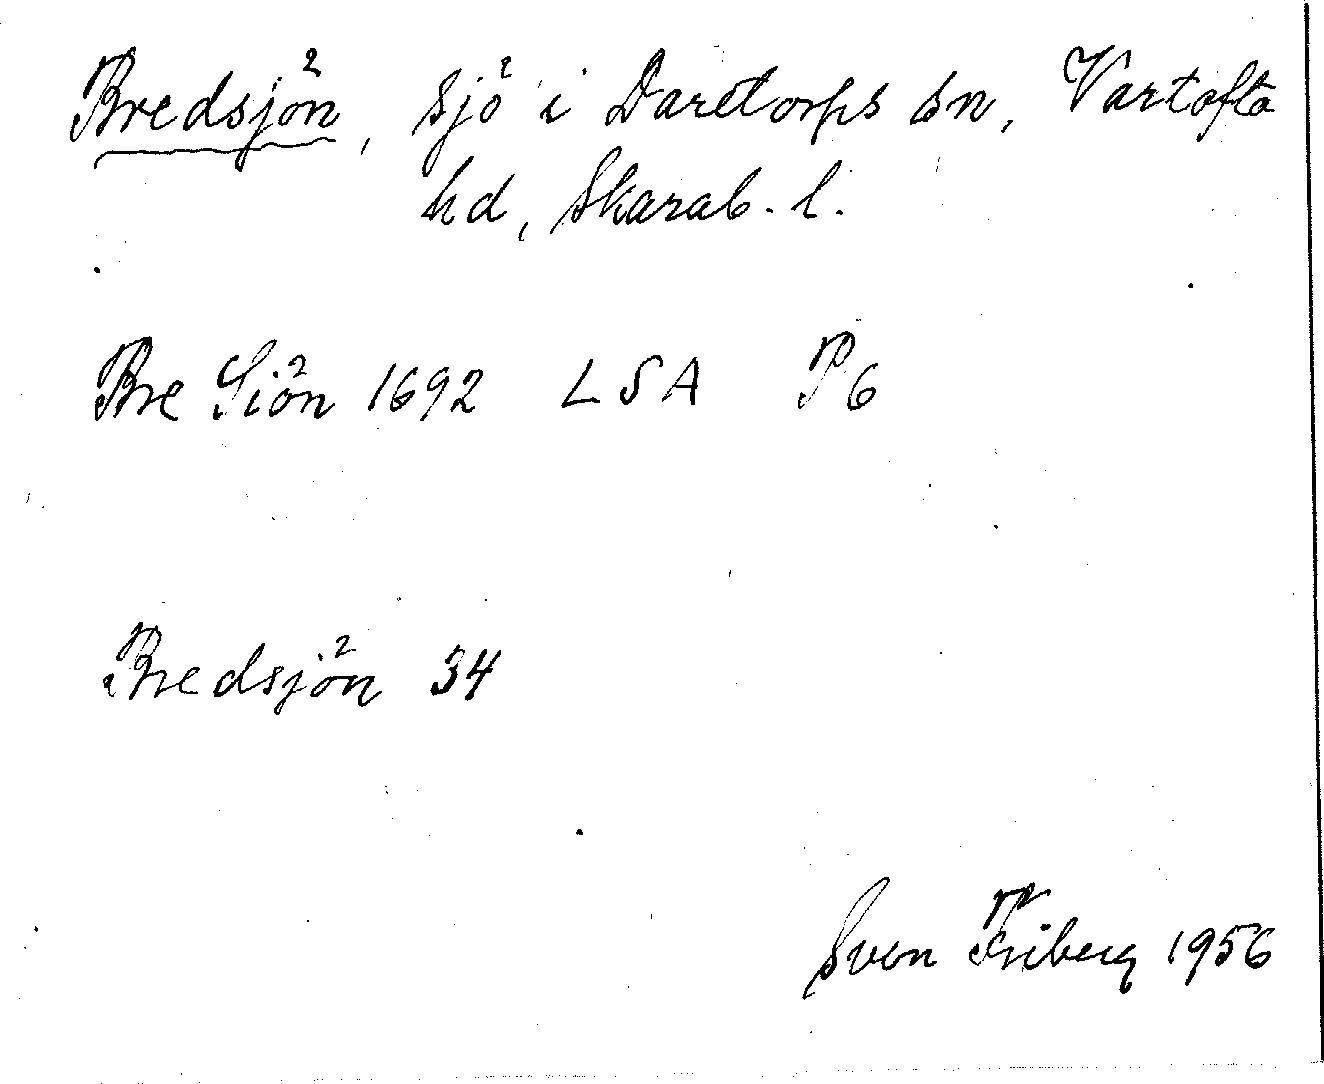 Bredsjön, sjö i Daretorps sn, Vartofta
hd, Skarab. l.
Bre Siön 1692 LSA P6
Bredsjön 34
Sven Friberg 1956